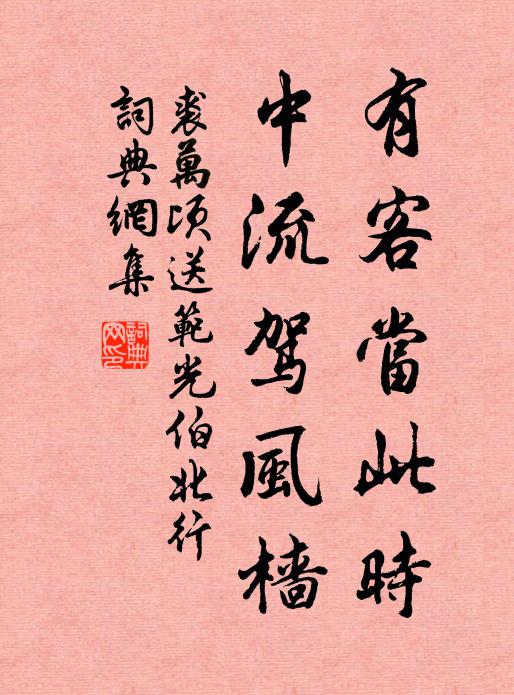 有客當此時
中流駕風檣
裘萬頃送範光伯北行
詞典網集
詞典網印